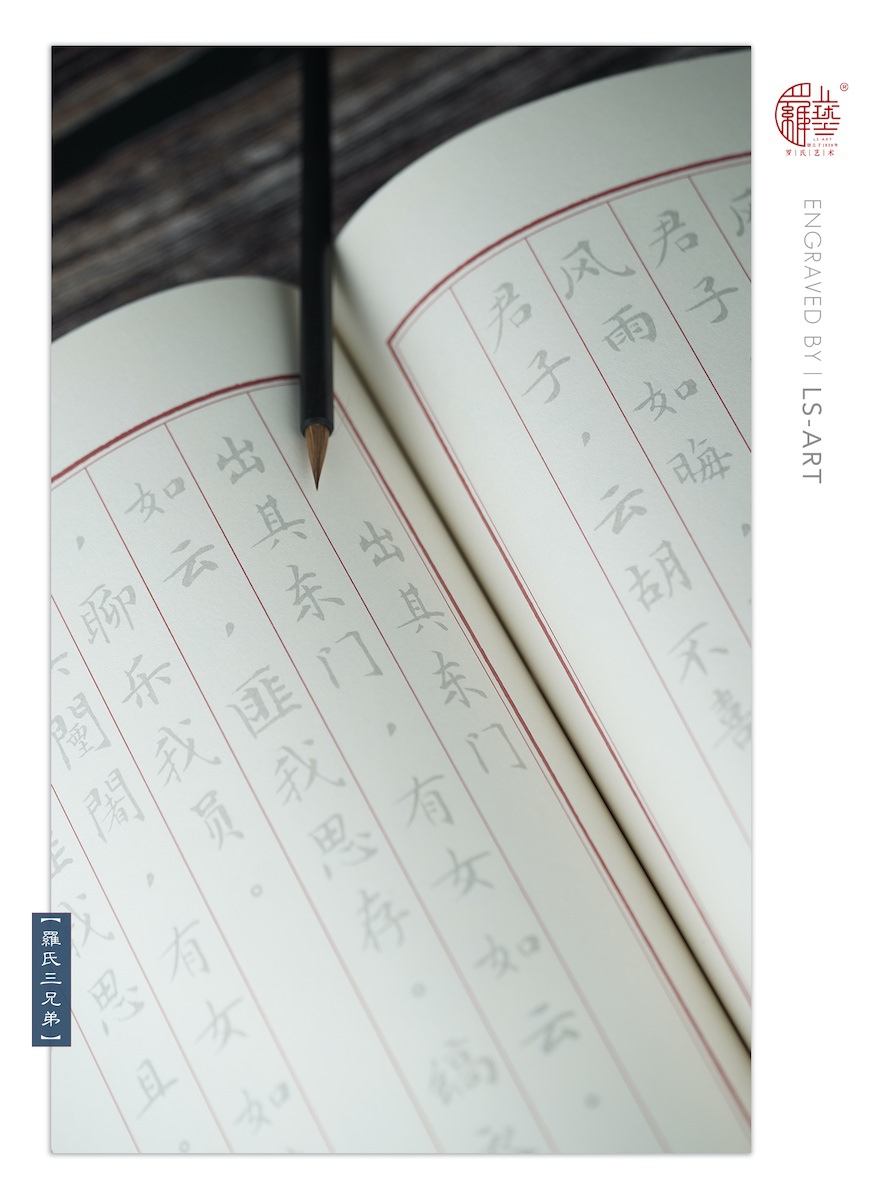 君子
风雨如晦，
君子，云胡不喜
出其东门
出其东门，有女如云。
如云，匪我思存。缟
，聊乐我员。
闉闍，有女如
我思且。
羅
罗氏艺术
ENGRAVED BY | LS-ART
【羅氏三兄弟】